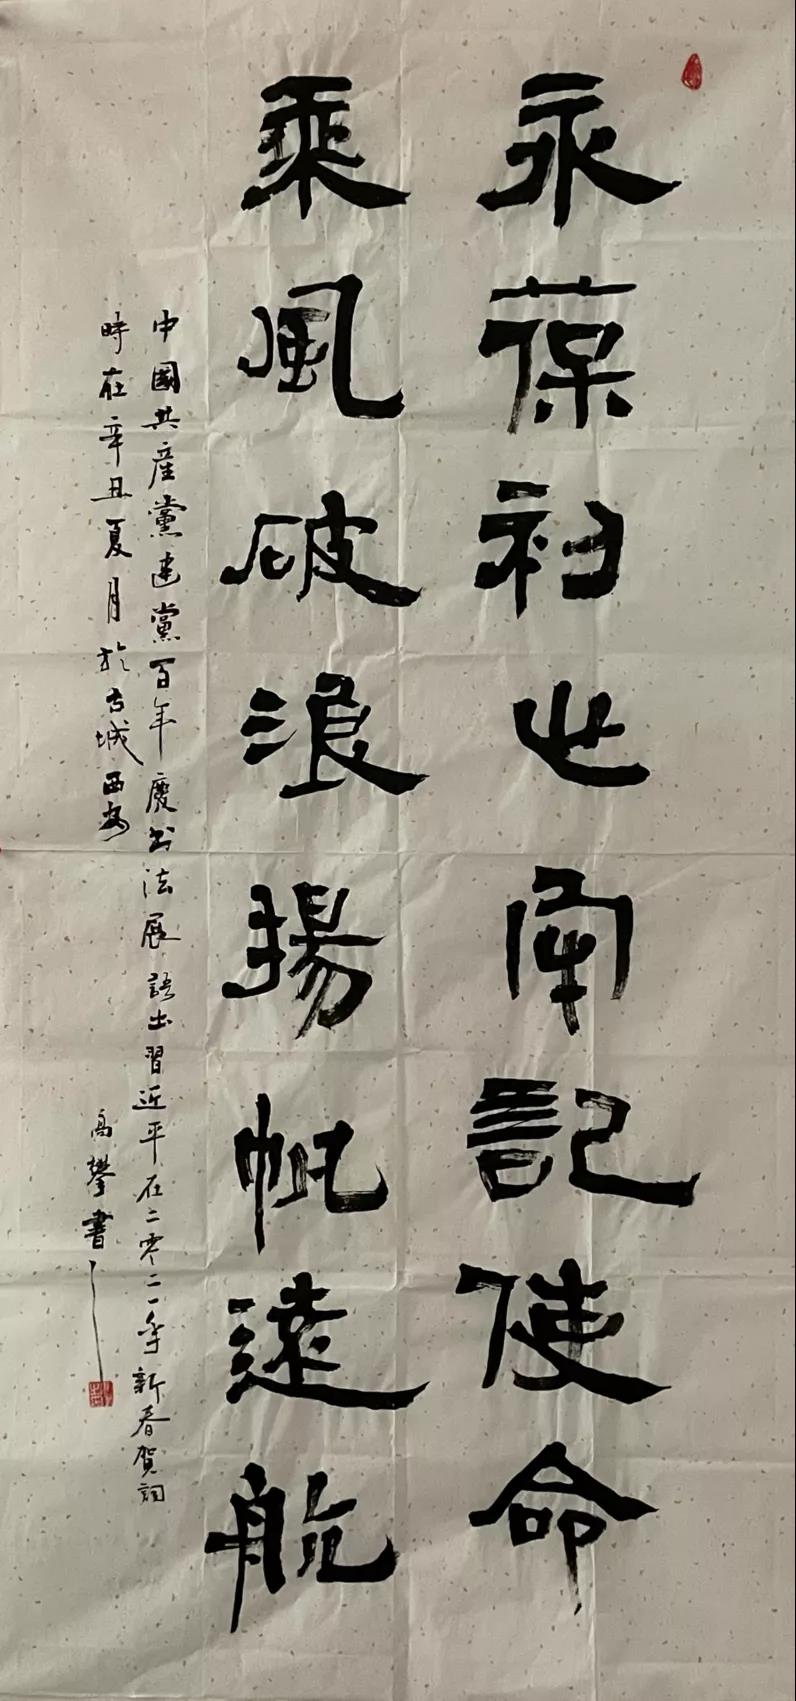 永葆初心牢記使命
乘風破浪揚帆遠航
中國共產黨建黨百年慶書法展 語出習近平在二零二一年新春賀詞
時在辛丑夏月於古城西安 高攀書